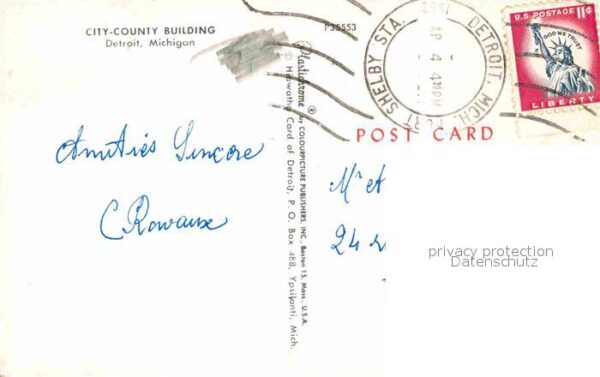 CITY-COUNTY BUILDING
Detroit, Michigan
P35553
Amitiés Sincère
C. Rowaux
Plastichrome® by COLOURPICTURE PUBLISHERS, INC., Boston 15, Mass., U.S.A.
© Hiawatha Card of Detroit, P. O. Box 488, Ypsilanti, Mich.
DETROIT, MICH. FORT SHELBY STA.
AP 4
4 30 PM
U.S. POSTAGE 11¢
IN GOD WE TRUST
LIBERTY
POST CARD
Mr et
24 r
privacy protection
Datenschutz